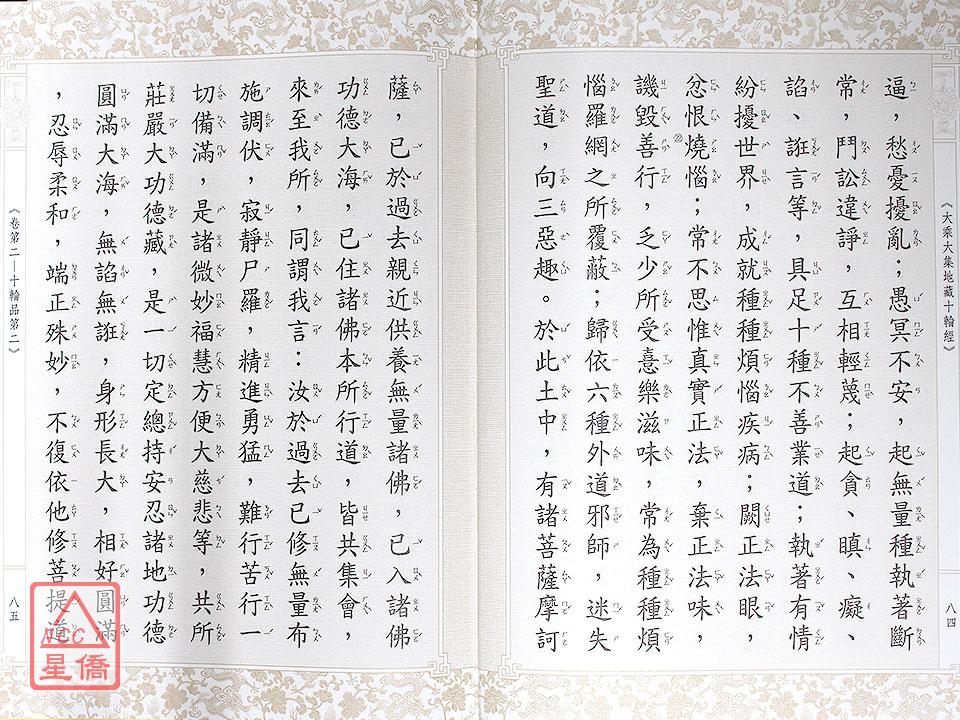 《大乘大集地藏十輪經》
八四
逼，愁憂擾亂；愚冥不安，起無量種執著斷
常，鬥訟違諍，互相輕蔑；起貪、瞋、癡、
諂、誑言等，具足十種不善業道；執著有情
紛擾世界，成就種種煩惱疾病；闕正法眼，
忿恨燒惱；常不思惟真實正法，棄正法味，
譏毀善行，乏少所受憙樂滋味，常為種種煩
惱羅網之所覆蔽；歸依六種外道邪師，迷失
聖道，向三惡趣。於此土中，有諸菩薩摩訶
薩，已於過去親近供養無量諸佛，已入諸佛
功德大海，已住諸佛本所行道，皆共集會，
來至我所，同謂我言：汝於過去已修無量布
施調伏，寂靜尸羅，精進勇猛，難行苦行一
切備滿，是諸微妙福慧方便大慈悲等，共所
莊嚴大功德藏，是一切定總持安忍諸地功德
圓滿大海，無諂無誑，身形長大，相好圓滿
，忍辱柔和，端正殊妙，不復依他修菩提道
《卷第二—十輪品第二》
八五
星僑